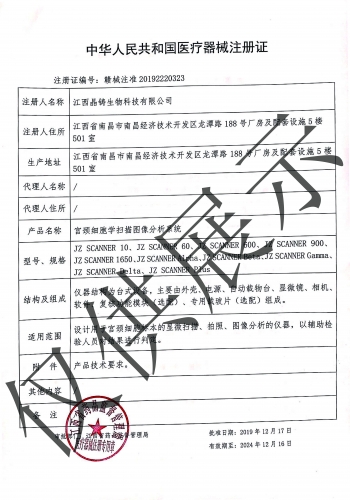 中华人民共和国医疗器械注册证
注册证编号：赣械注准20192220323
注册人名称
江西晶铸生物科技有限公司
注册人住所
江西省南昌市南昌经济技术开发区龙潭路188号厂房及配套设施5楼
501室
生产地址
江西省南昌市南昌经济技术开发区龙潭路188号厂房及配套设施5楼
501室
代理人名称
/
代理人住所
/
产品名称
宫颈细胞学扫描图像分析系统
型号、规格
JZ SCANNER 10、JZ SCANNER 60、JZ SCANNER 600、JZ SCANNER 900、
JZ SCANNER 1650、JZ SCANNER Alpha、JZ SCANNER Beta、JZ SCANNER Gamma、
JZ SCANNER Delta、JZ SCANNER Plus
结构及组成
仪器结构为台式设备，主要由外壳、电源、自动载物台、显微镜、相机、
软件、复核功能模块（选配）、专用载玻片（选配）组成。
适用范围
设计用于宫颈细胞标本的显微扫描、拍照、图像分析的仪器，以辅助检
验人员对结果进行判定。
附件
产品技术要求。
其他内容
备注
审批部门：江西省药品监督管理局
批准日期：2019年12月17日
有效期至：2024年12月16日
仅供展示